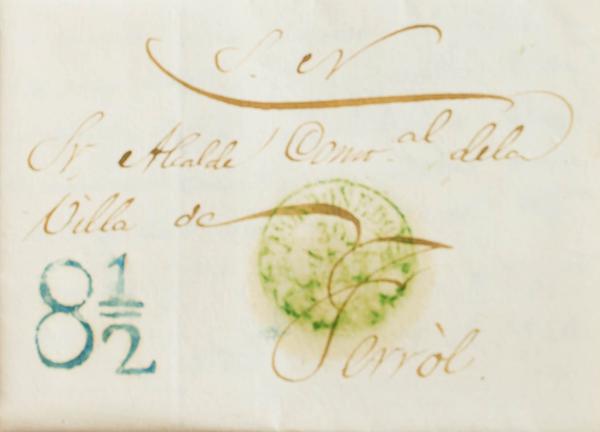 S. N
Sr. Alcalde Conso.al dela
Villa de
Ferròl.
8 1/2